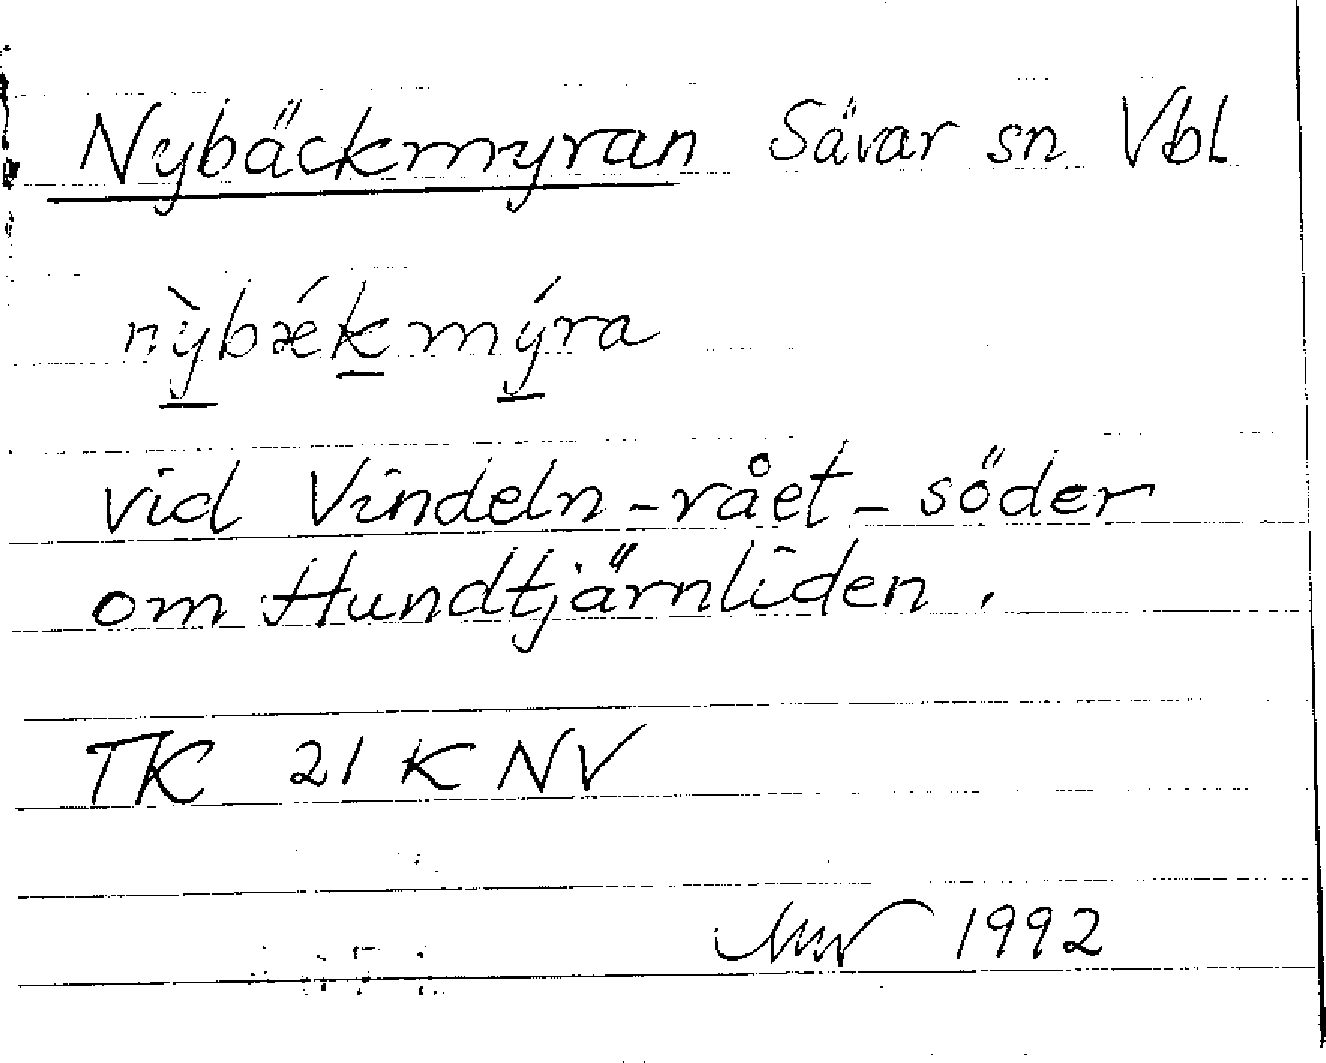 Nybäckmyran Sävar sn Vbl
nỳbǽkmýra
vid Vindeln-rået - söder
om Hundtjärnliden.
TK 21 K NV
1992